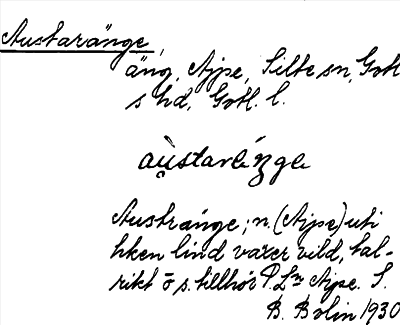 Austaränge,
äng, Ajpe, Silte sn, Gotl
s hd, Gotl. l.
Austränge; n. (Ajpe) uti
hken lind vaxer vild, tal-
rikt o s. tillhör P. Ln Ajpe. S.
B. Bolin 1930